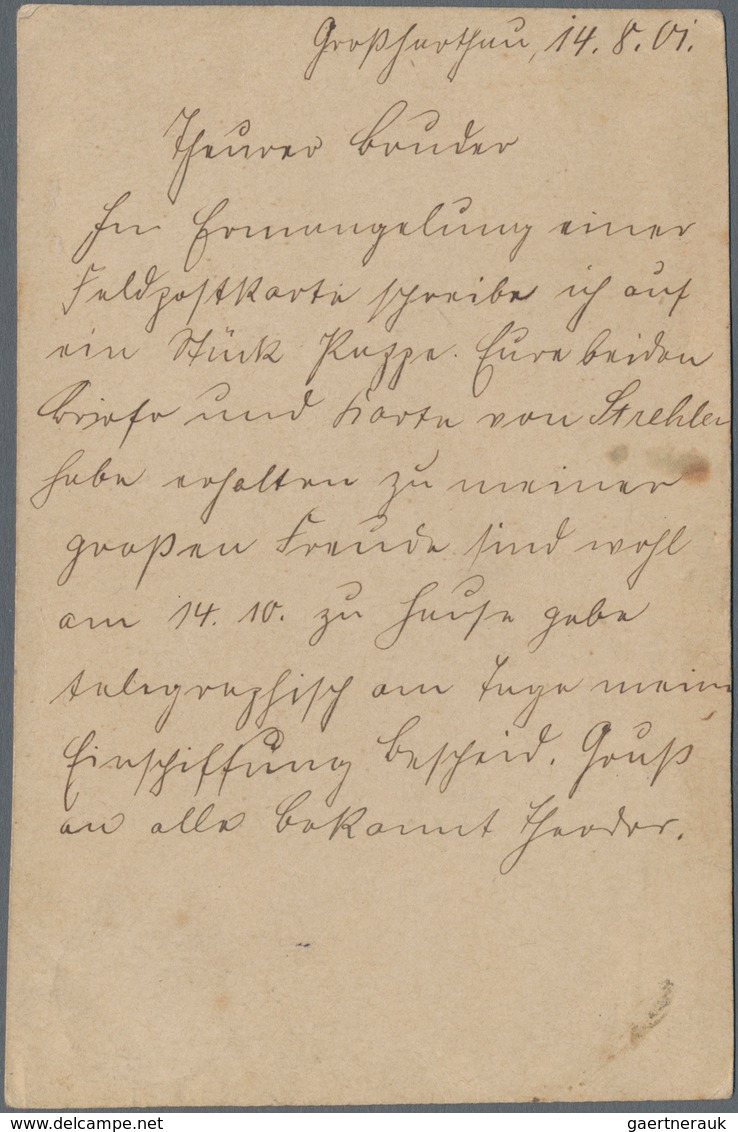 Großharthau, 14. 8. 01.
Theurer Bruder
In Ermangelung einer
Feldpostkarte schreibe ich auf
ein Stück Pappe. Eure beiden
Briefe und Karte von Strehlen
habe erhalten zu meiner
großen Freude sind wohl
am 14. 10. zu Hause gebe
telegraphisch am Tage meine
Einschiffung bescheid. Gruß
an alle bekannt Theodor.
gaertnerauk